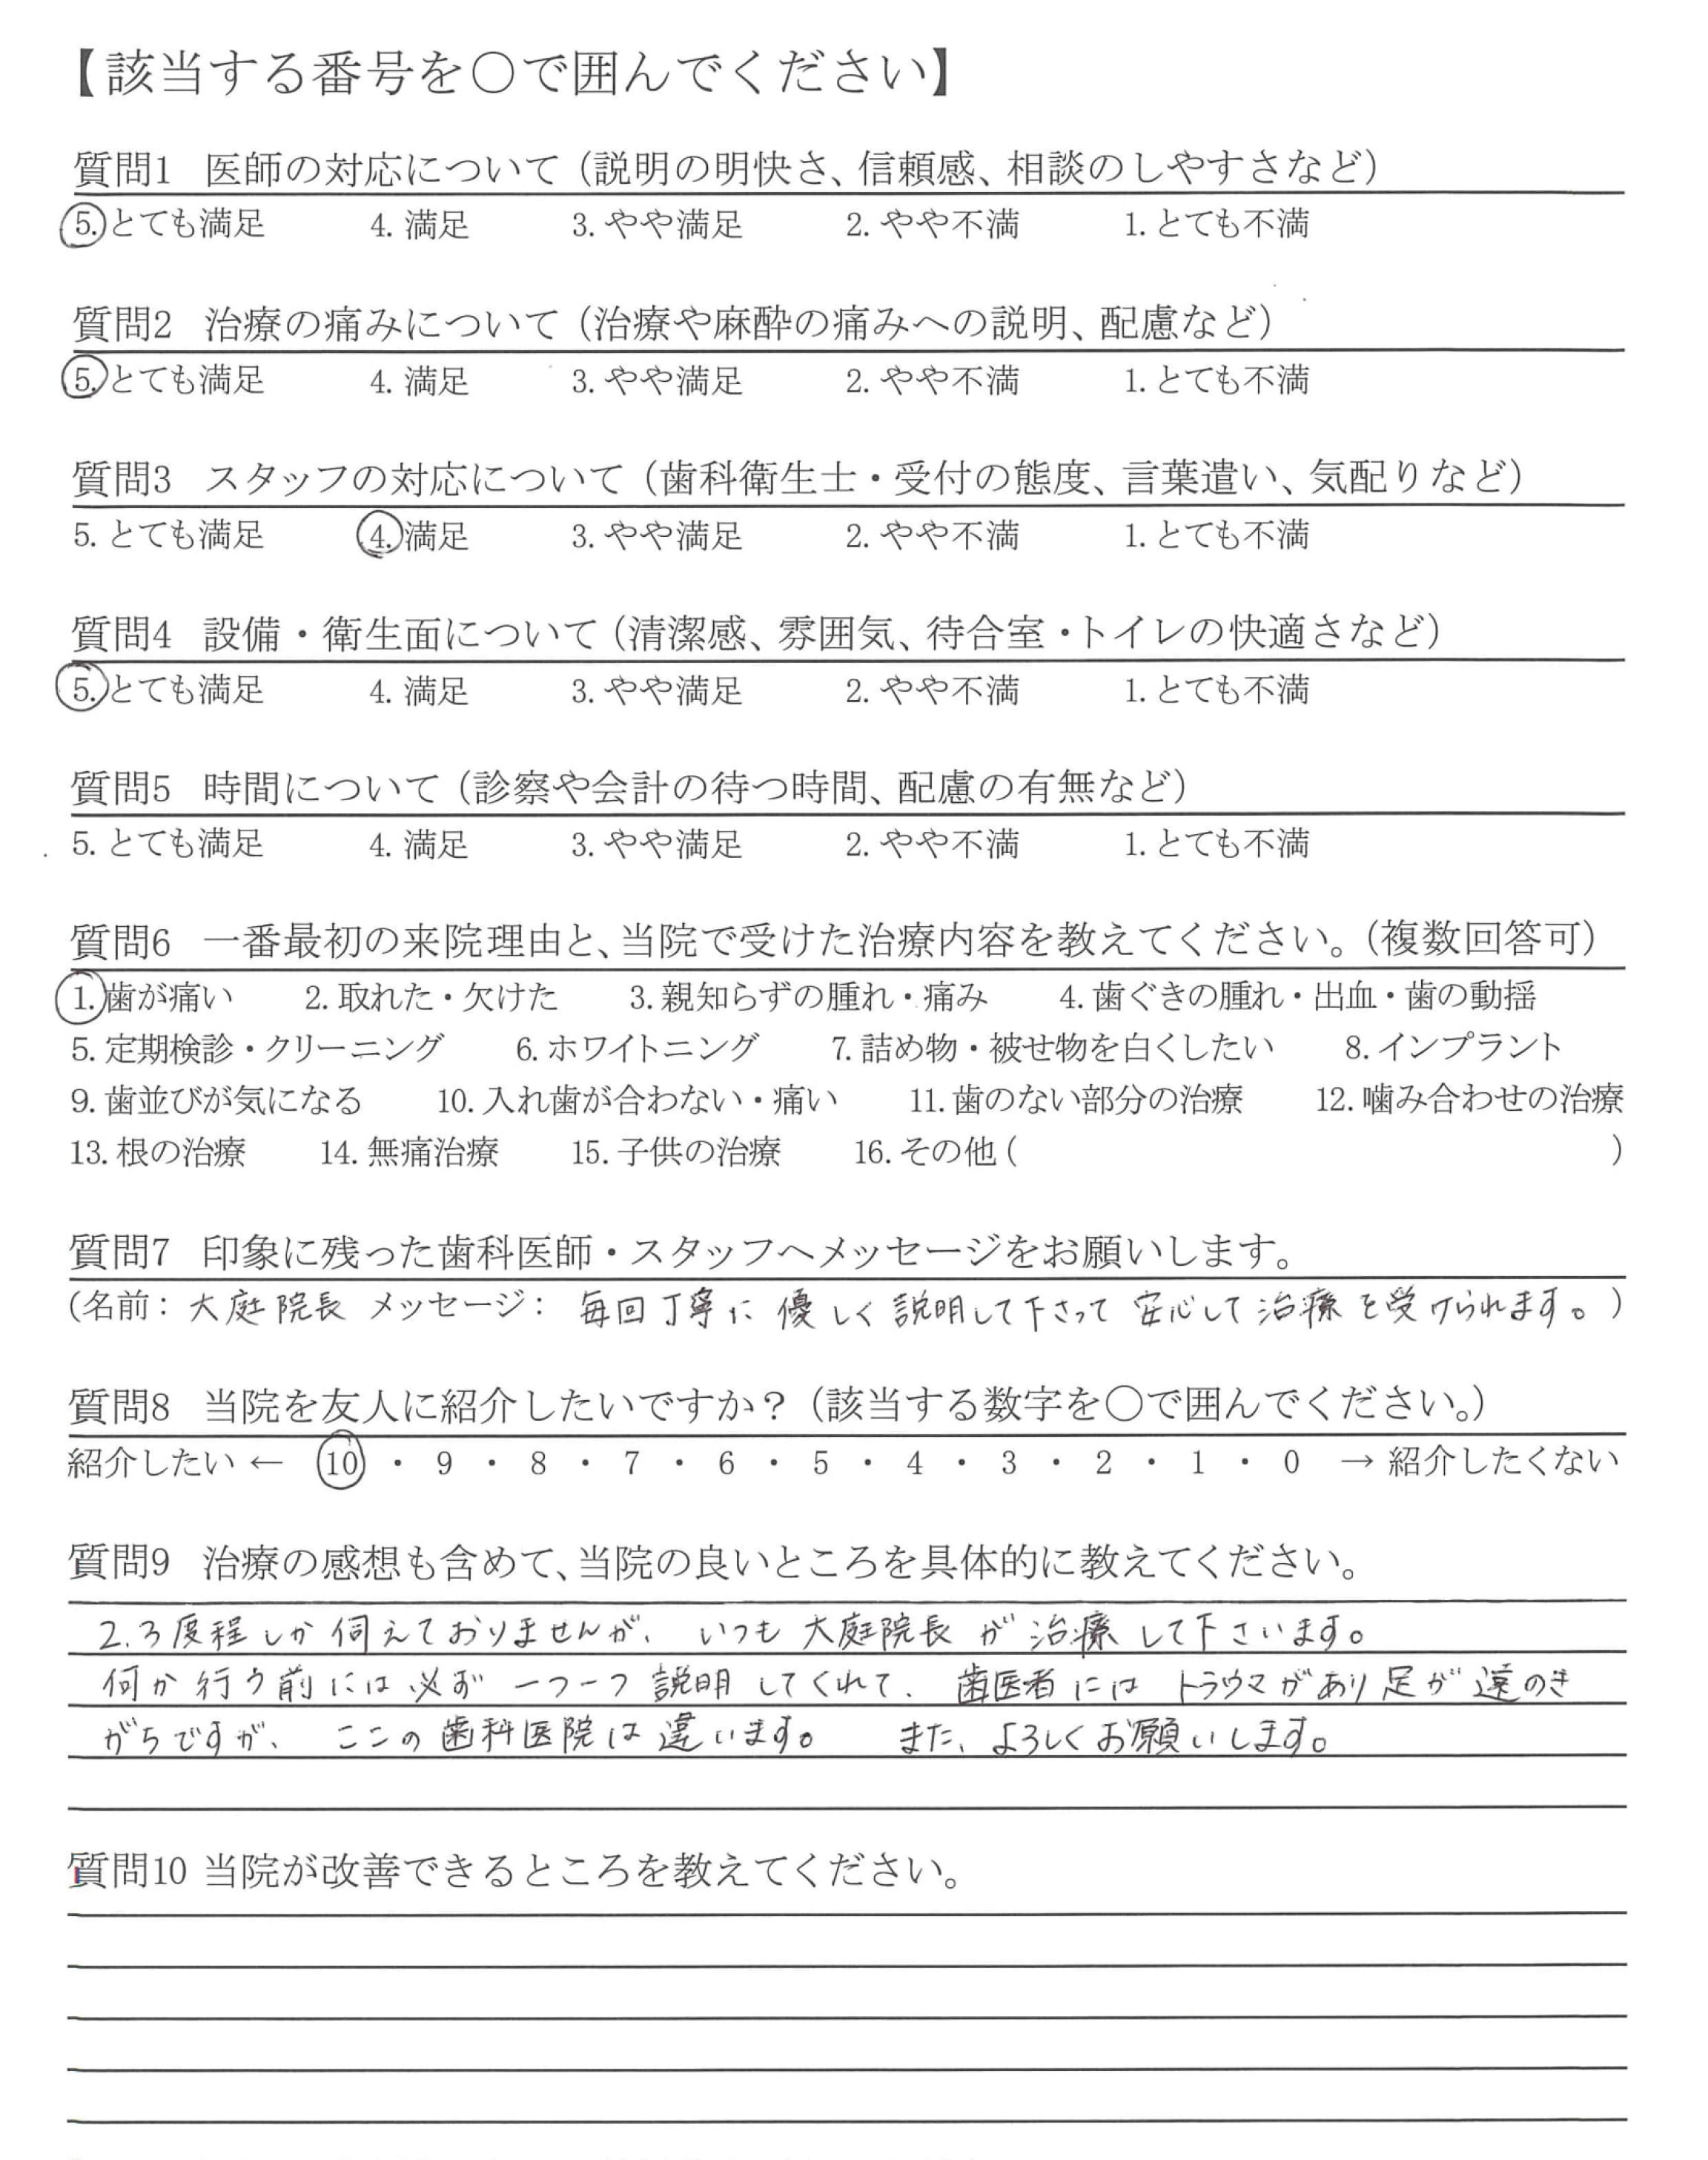 【該当する番号を〇で囲んでください】
質問1 医師の対応について（説明の明快さ、信頼感、相談のしやすさなど）
5. とても満足 4. 満足 3. やや満足 2. やや不満 1. とても不満
質問2 治療の痛みについて（治療や麻酔の痛みへの説明、配慮など）
5. とても満足 4. 満足 3. やや満足 2. やや不満 1. とても不満
質問3 スタッフの対応について（歯科衛生士・受付の態度、言葉遣い、気配りなど）
5. とても満足 4. 満足 3. やや満足 2. やや不満 1. とても不満
質問4 設備・衛生面について（清潔感、雰囲気、待合室・トイレの快適さなど）
5. とても満足 4. 満足 3. やや満足 2. やや不満 1. とても不満
質問5 時間について（診察や会計の待つ時間、配慮の有無など）
5. とても満足 4. 満足 3. やや満足 2. やや不満 1. とても不満
質問6 一番最初の来院理由と、当院で受けた治療内容を教えてください。（複数回答可）
1. 歯が痛い 2. 取れた・欠けた 3. 親知らずの腫れ・痛み 4. 歯ぐきの腫れ・出血・歯の動揺
5. 定期検診・クリーニング 6. ホワイトニング 7. 詰め物・被せ物を白くしたい 8. インプラント
9. 歯並びが気になる 10. 入れ歯が合わない・痛い 11. 歯のない部分の治療 12. 噛み合わせの治療
13. 根の治療 14. 無痛治療 15. 子供の治療 16. その他（ ）
質問7 印象に残った歯科医師・スタッフへメッセージをお願いします。
（名前： 大庭院長 メッセージ： 毎回丁寧に優しく説明して下さって安心して治療を受けられます。）
質問8 当院を友人に紹介したいですか？（該当する数字を〇で囲んでください。）
紹介したい ← 10 ・ 9 ・ 8 ・ 7 ・ 6 ・ 5 ・ 4 ・ 3 ・ 2 ・ 1 ・ 0 → 紹介したくない
質問9 治療の感想も含めて、当院の良いところを具体的に教えてください。
2.3度程しか伺えておりませんが、いつも大庭院長が治療して下さいます。
何か行う前には必ず一つ一つ説明してくれて、歯医者にはトラウマがあり足が遠のき
がちですが、ここの歯科医院は違います。 また、よろしくお願いします。
質問10 当院が改善できるところを教えてください。